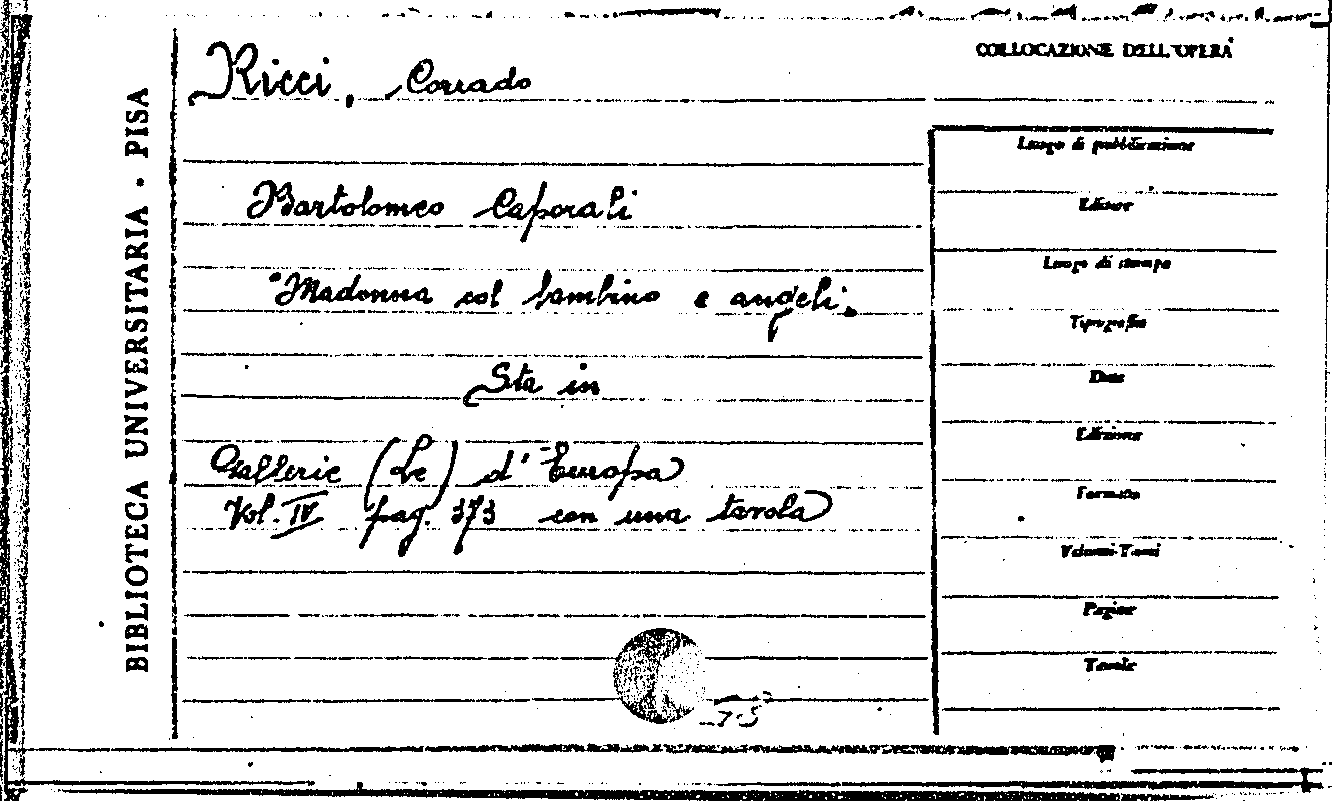 BIBLIOTECA UNIVERSITARIA · PISA
Ricci, Corrado
Bartolomeo Caporali
"Madonna col bambino e angeli„
Sta in
Gallerie (Le) d'Europa
Vol. IV pag. 373 con una tavola
COLLOCAZIONE DELL'OPERA
Luogo di pubblicazione
Editore
Luogo di stampa
Tipografia
Data
Edizione
Formato
Volumi-Tomi
Pagine
Tavole